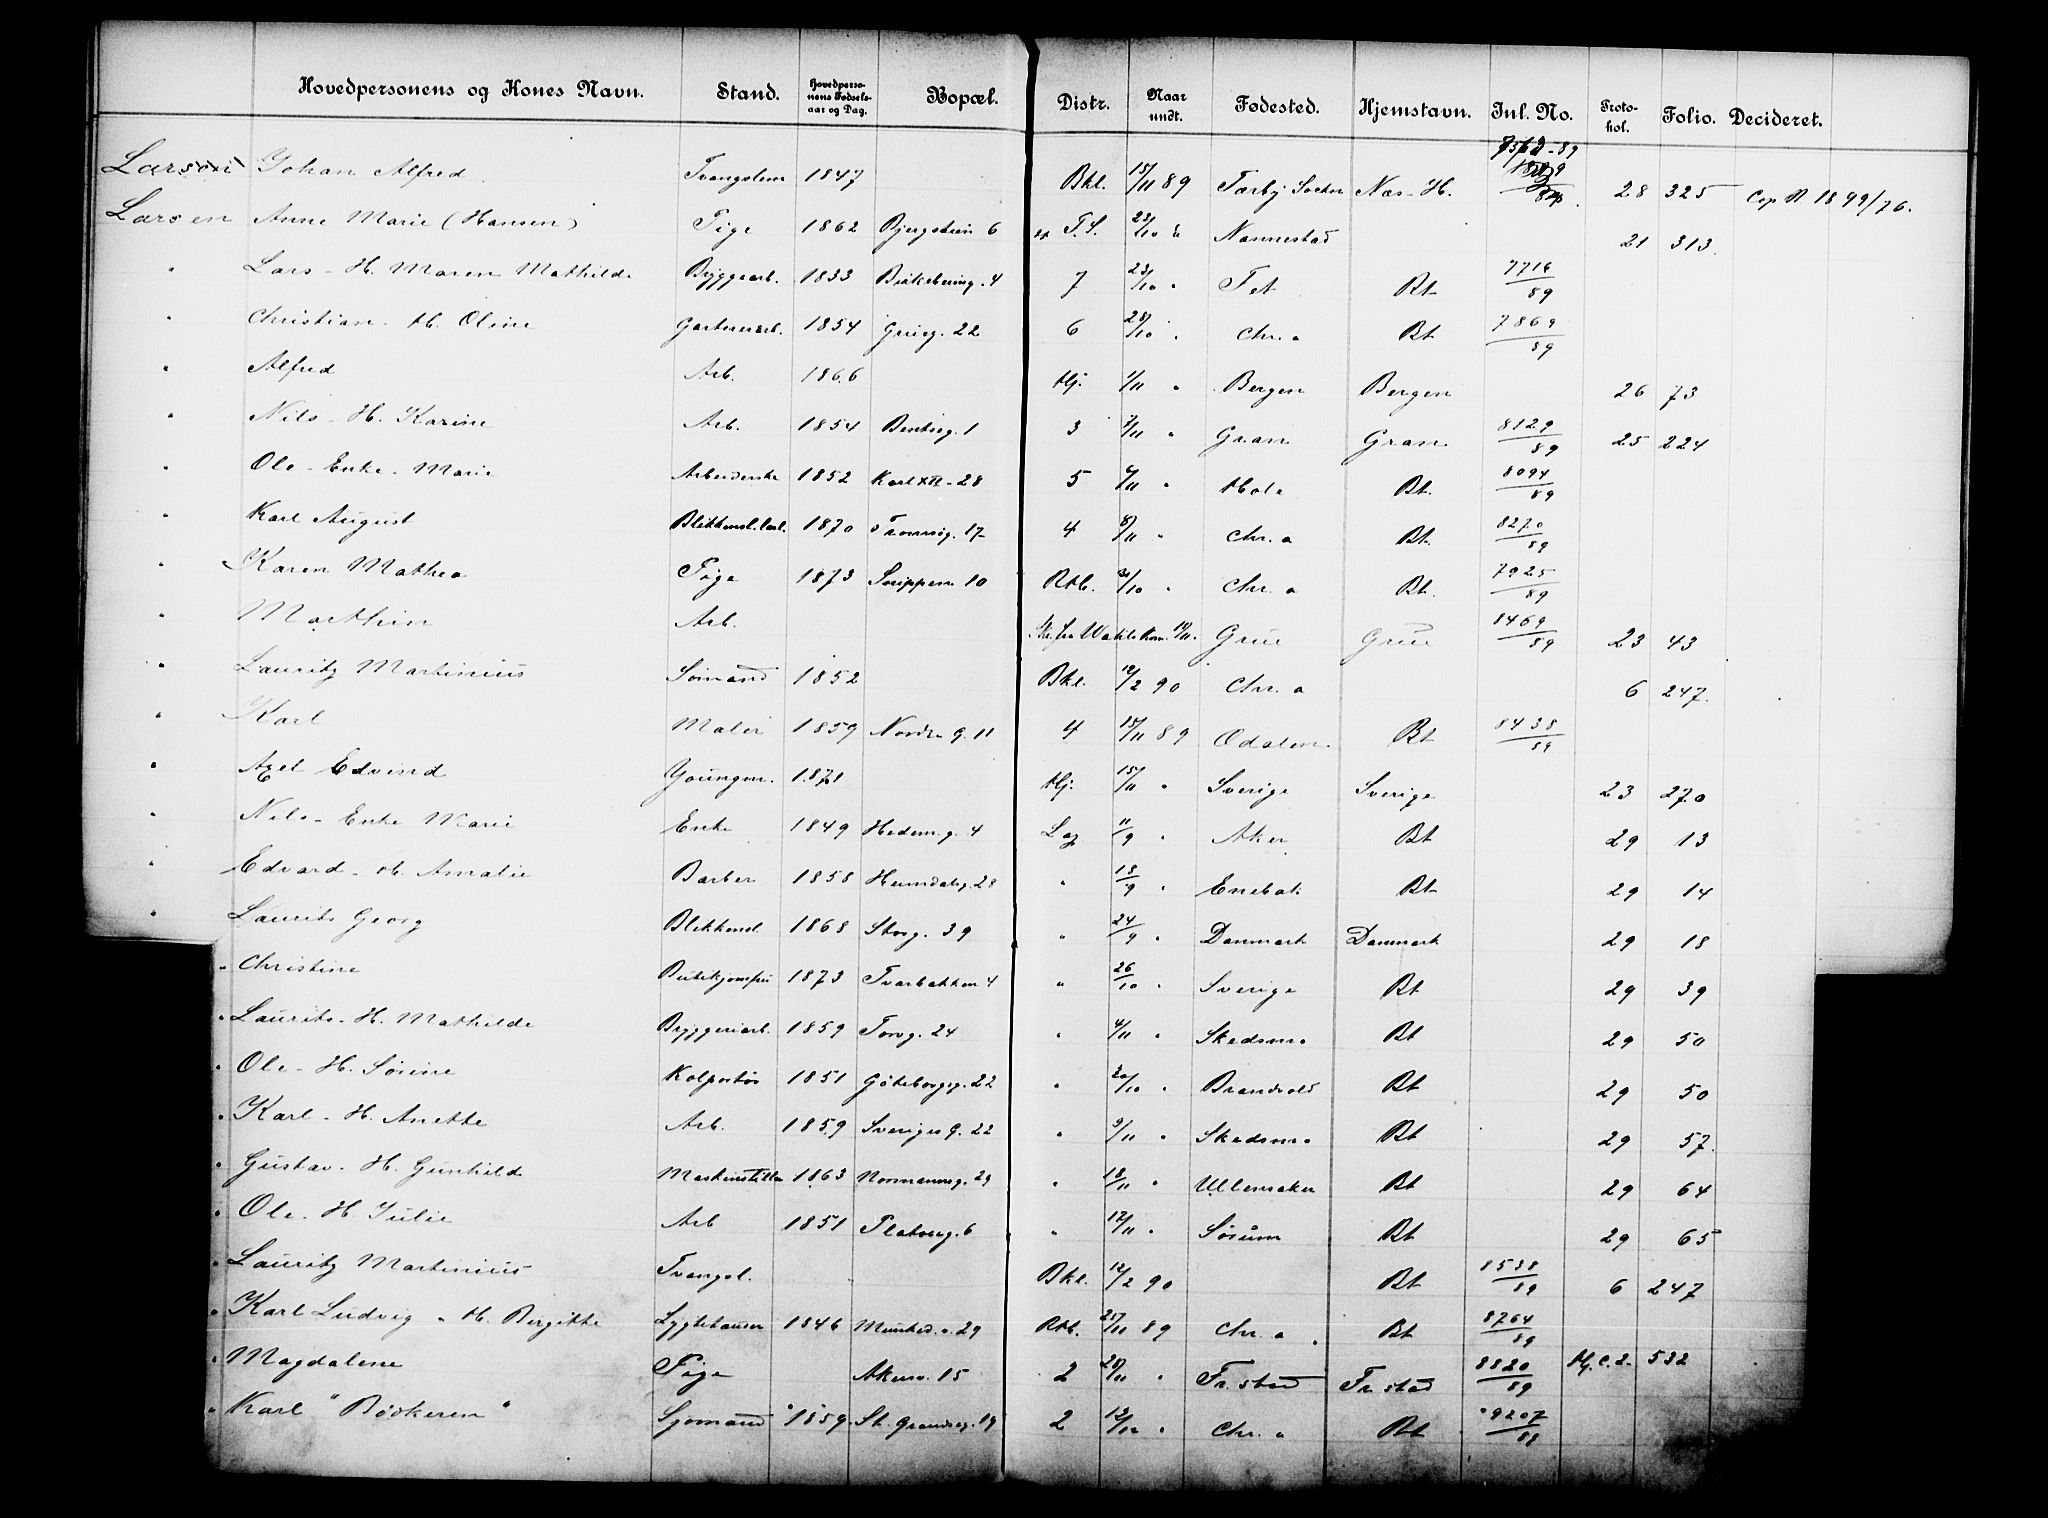 Hovedpersonens og Kones Navn. Stand. Hovedperso-nens Fødsels-aar og Dag. Bopæl. Distr. Naar undt. Fødested. Hjemstavn. Jul. No. Proto-kol. Folio. Decideret.
Larson Johan Alfred Tvangslem 1847 Bkl. 15/11 89 Tarby Sockn Næs-H. 28 325 Cop N 1899/76.
Larsen Anne Marie (Hansen) Pige 1862 Bjergstien 6 F.S. 23/10 Nannestad 21 313.
" Lars - H. Maren Mathilde Byggearb. 1833 Birkebeinerg. 4 7 23/10 " Fet Bt 7716/89
" Christian - H. Oline Gartnerarb. 1854 Grüng. 22 6 28/10 " Chr.a Bt 7869/89
" Alfred Arb. 1866 Hj. 1/11 " Bergen Bergen 26 73
" Nils - H. Karine Arb. 1854 Bentseg. 1 3 7/11 " Gran Gran 8129/89 25 224
" Ole - Enke - Marie Arbeiderske 1852 Karl XII - 28 5 6/11 " Hole Bt. 8094/89
" Karl August Blikkensl.lærl. 1870 Tromsøg. 17 4 8/11 " Chr. a Bt. 8270/89
" Karen Mathea Pige 1873 Snippen 10 Rtb. 30/10 " Chr. a Bt. 7925/89
" Marthin Arb. Skr. fra Wahls Kom. 14/11. Grue Grue 8469/89 23 43
" Lauritz Martinius Sømand 1852 Bkl. 12/2 90 Chr. a 6 247.
" Karl Maler 1859 Nordre g. 11 4 15/11 89 Odalen Bt 8438/89
" Axel Edvind Youngm. 1871 Hj. 15/11 " Sverige Sverige 23 270
" Nils - Enke Marie Enke 1849 Hedem.g. 4 Log 11/9 " Aker Bt 29 13
" Edvard - H. Amalie Barber 1858 Heimdalsg. 28 " 18/9 " Enebak Bt 29 14
" Laurits Georg Blikkensl. 1868 Storg. 39 " 24/9 " Danmark Danmark 29 18
" Christine Butikjomfru 1873 Tværbakken 4 " 26/10 " Sverige Bt 29 39
" Laurits - H. Mathilde Bryggeriarb. 1859 Torvg. 24 " 4/11 " Skedsmo Bt 29 50
" Ole - H. Sørine Kolportør 1851 Göteborgsg. 22 " 20/10 " Brandvold Bt 29 50
" Karl - H. Anette Arb. 1859 Sveriges G. 22 " 9/11 " Skedsmo Bt 29 57.
" Gustav - H. Gunhild Maskinstiller 1863 Normannsg. 29 " 18/11 " Ullensaker Bt 29 64
" Ole - H. Julie Arb 1851 Platoug. 6 " 12/11 " Sørum Bt 29 65
" Lauritz Martinius Tvangsl. Bkl. 12/2 90 Bt 8538/89 6 247
" Karl Ludvig - H. Birgitte Lygtetænder 1846 Munked.v. 29 Rtb. 25/11 89 Chr. a Bt 8764/89
" Magdalene Pige Akersv. 15 2 28/11 " Fr.stad Fr.stad 8820/89 Hj.C.2. 532
" Karl "Bödkeren" Sjømand 1859 St. Grændseg. 19 2 12/12 " Chr. a Bt 9207/89